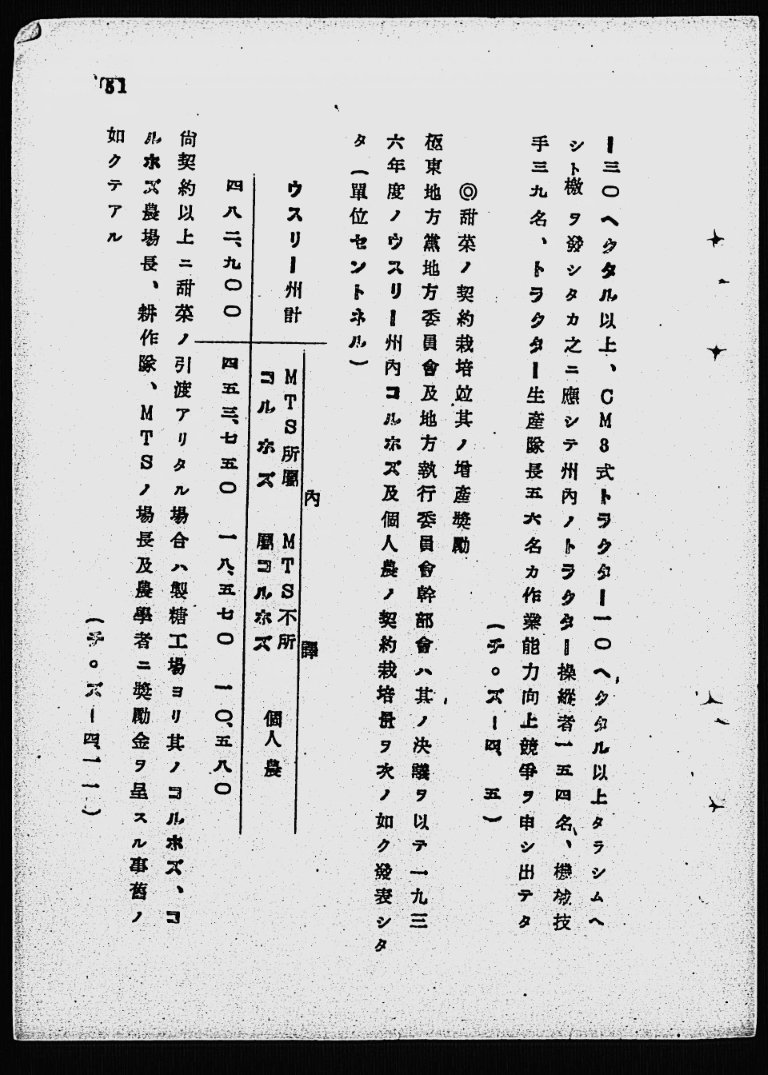 51
ー三〇ヘクタル以上、CM8式トラクター一〇ヘクタル以上タラシムヘ
シト檄ヲ發シタカ之ニ應シテ州內ノトラクター操縱者一五四名、機械技
手三九名、トラクター生產隊長五六名カ作業能力向上競爭ヲ申シ出テタ
(チ。ズー四、五)
◎甜菜ノ契約栽培竝其ノ增產獎勵
極東地方黨地方委員會及地方執行委員會幹部會ハ其ノ決議ヲ以テ一九三
六年度ノウスリー州內コルホズ及個人農ノ契約栽培量ヲ次ノ如ク發表シタ
タ(單位セントネル)
內譯
ウスリー州計
MTS所屬コルホズ
MTS不所屬コルホズ
個人農
四八二、九〇〇
四五三、七五〇
一八、五七〇
一〇、五八〇
尙契約以上ニ甜菜ノ引渡アリタル場合ハ製糖工場ヨリ其ノコルホズ、コ
ルホズ農場長、耕作隊、MTSノ場長及農學者ニ獎勵金ヲ呈スル事舊ノ
如クテアル
(チ。ズー四、一一)